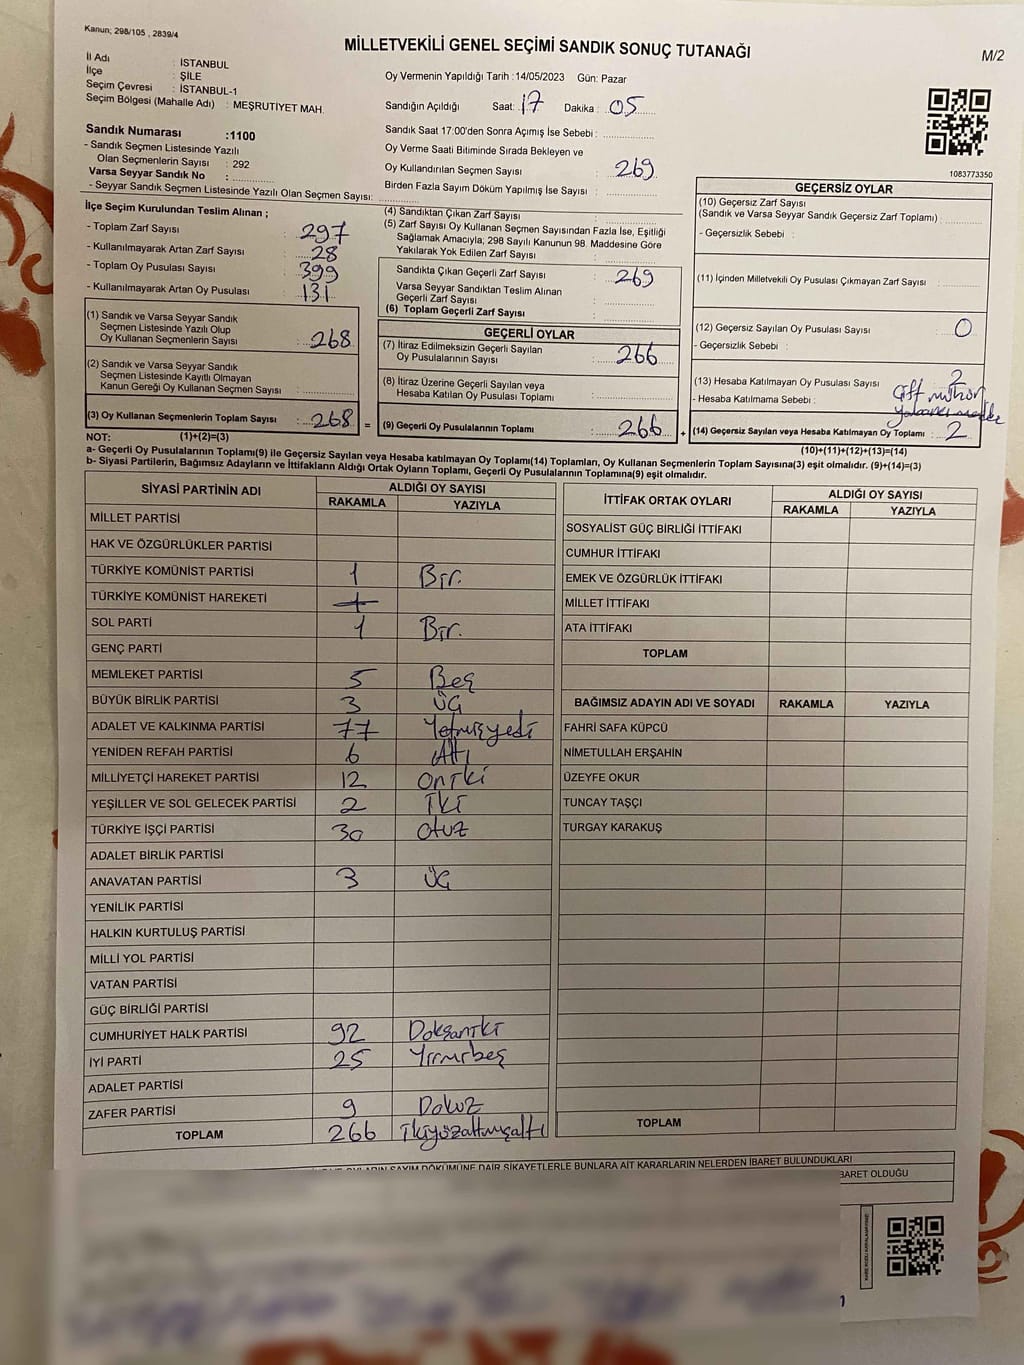 Kanun; 298/105 , 2839/4
MİLLETVEKİLİ GENEL SEÇİMİ SANDIK SONUÇ TUTANAĞI
M/2
İl Adı : İSTANBUL
İlçe : ŞİLE
Seçim Çevresi : İSTANBUL-1
Seçim Bölgesi (Mahalle Adı) : MEŞRUTİYET MAH.
Oy Vermenin Yapıldığı Tarih :14/05/2023 Gün: Pazar
Sandığın Açıldığı Saat: 17 Dakika : 05
Sandık Saat 17:00'den Sonra Açılmış İse Sebebi :
Oy Verme Saati Bitiminde Sırada Bekleyen ve
Oy Kullandırılan Seçmen Sayısı : 269
Birden Fazla Sayım Döküm Yapılmış İse Sayısı :
Sandık Numarası :1100
- Sandık Seçmen Listesinde Yazılı
Olan Seçmenlerin Sayısı : 292
Varsa Seyyar Sandık No :
- Seyyar Sandık Seçmen Listesinde Yazılı Olan Seçmen Sayısı:
1083773350
İlçe Seçim Kurulundan Teslim Alınan ;
- Toplam Zarf Sayısı : 297
- Kullanılmayarak Artan Zarf Sayısı : 28
- Toplam Oy Pusulası Sayısı : 399
- Kullanılmayarak Artan Oy Pusulası : 131
(1) Sandık ve Varsa Seyyar Sandık
Seçmen Listesinde Yazılı Olup
Oy Kullanan Seçmenlerin Sayısı : 268
(2) Sandık ve Varsa Seyyar Sandık
Seçmen Listesinde Kayıtlı Olmayan
Kanun Gereği Oy Kullanan Seçmen Sayısı :
(3) Oy Kullanan Seçmenlerin Toplam Sayısı : 268 =
(4) Sandıktan Çıkan Zarf Sayısı :
(5) Zarf Sayısı Oy Kullanan Seçmen Sayısından Fazla İse, Eşitliği
Sağlamak Amacıyla; 298 Sayılı Kanunun 98. Maddesine Göre
Yakılarak Yok Edilen Zarf Sayısı :
Sandıkta Çıkan Geçerli Zarf Sayısı : 269
Varsa Seyyar Sandıktan Teslim Alınan
Geçerli Zarf Sayısı :
(6) Toplam Geçerli Zarf Sayısı :
GEÇERLİ OYLAR
(7) İtiraz Edilmeksizin Geçerli Sayılan
Oy Pusulalarının Sayısı : 266
(8) İtiraz Üzerine Geçerli Sayılan veya
Hesaba Katılan Oy Pusulası Toplamı :
(9) Geçerli Oy Pusulalarının Toplamı : 266 +
GEÇERSİZ OYLAR
(10) Geçersiz Zarf Sayısı
(Sandık ve Varsa Seyyar Sandık Geçersiz Zarf Toplamı) :
- Geçersizlik Sebebi :
(11) İçinden Milletvekili Oy Pusulası Çıkmayan Zarf Sayısı :
(12) Geçersiz Sayılan Oy Pusulası Sayısı : 0
- Geçersizlik Sebebi :
(13) Hesaba Katılmayan Oy Pusulası Sayısı : 2
- Hesaba Katılmama Sebebi : Çift mühür
(14) Geçersiz Sayılan veya Hesaba Katılmayan Oy Toplamı : 2
NOT: (1)+(2)=(3)
(10)+(11)+(12)+(13)=(14)
a- Geçerli Oy Pusulalarının Toplamı(9) ile Geçersiz Sayılan veya Hesaba katılmayan Oy Toplamı(14) Toplamları, Oy Kullanan Seçmenlerin Toplam Sayısına(3) eşit olmalıdır. (9)+(14)=(3)
b- Siyasi Partilerin, Bağımsız Adayların ve İttifakların Aldığı Ortak Oyların Toplamı, Geçerli Oy Pusulalarının Toplamına(9) eşit olmalıdır.
SİYASİ PARTİNİN ADI ALDIĞI OY SAYISI
RAKAMLA YAZIYLA
MİLLET PARTİSİ
HAK VE ÖZGÜRLÜKLER PARTİSİ
TÜRKİYE KOMÜNİST PARTİSİ 1 Bir.
TÜRKİYE KOMÜNİST HAREKETİ
SOL PARTİ 1 Bir.
GENÇ PARTİ
MEMLEKET PARTİSİ 5 Beş
BÜYÜK BİRLİK PARTİSİ 3 Üç
ADALET VE KALKINMA PARTİSİ 77 Yetmişyedi
YENİDEN REFAH PARTİSİ 6 Altı
MİLLİYETÇİ HAREKET PARTİSİ 12 Oniki
YEŞİLLER VE SOL GELECEK PARTİSİ 2 İki
TÜRKİYE İŞÇİ PARTİSİ 30 Otuz
ADALET BİRLİK PARTİSİ
ANAVATAN PARTİSİ 3 Üç
YENİLİK PARTİSİ
HALKIN KURTULUŞ PARTİSİ
MİLLİ YOL PARTİSİ
VATAN PARTİSİ
GÜÇ BİRLİĞİ PARTİSİ
CUMHURİYET HALK PARTİSİ 92 Doksaniki
İYİ PARTİ 25 Yirmibeş
ADALET PARTİSİ
ZAFER PARTİSİ 9 Dokuz
TOPLAM 266 İkiyüzaltmışaltı
İTTİFAK ORTAK OYLARI ALDIĞI OY SAYISI
RAKAMLA YAZIYLA
SOSYALİST GÜÇ BİRLİĞİ İTTİFAKI
CUMHUR İTTİFAKI
EMEK VE ÖZGÜRLÜK İTTİFAKI
MİLLET İTTİFAKI
ATA İTTİFAKI
TOPLAM
BAĞIMSIZ ADAYIN ADI VE SOYADI RAKAMLA YAZIYLA
FAHRİ SAFA KÜPCÜ
NİMETULLAH ERŞAHİN
ÜZEYFE OKUR
TUNCAY TAŞÇI
TURGAY KARAKUŞ
TOPLAM
SAYIM DÖKÜMÜNE DAİR ŞİKAYETLERLE BUNLARA AİT KARARLARIN NELERDEN İBARET BULUNDUKLARI
BARET OLDUĞU